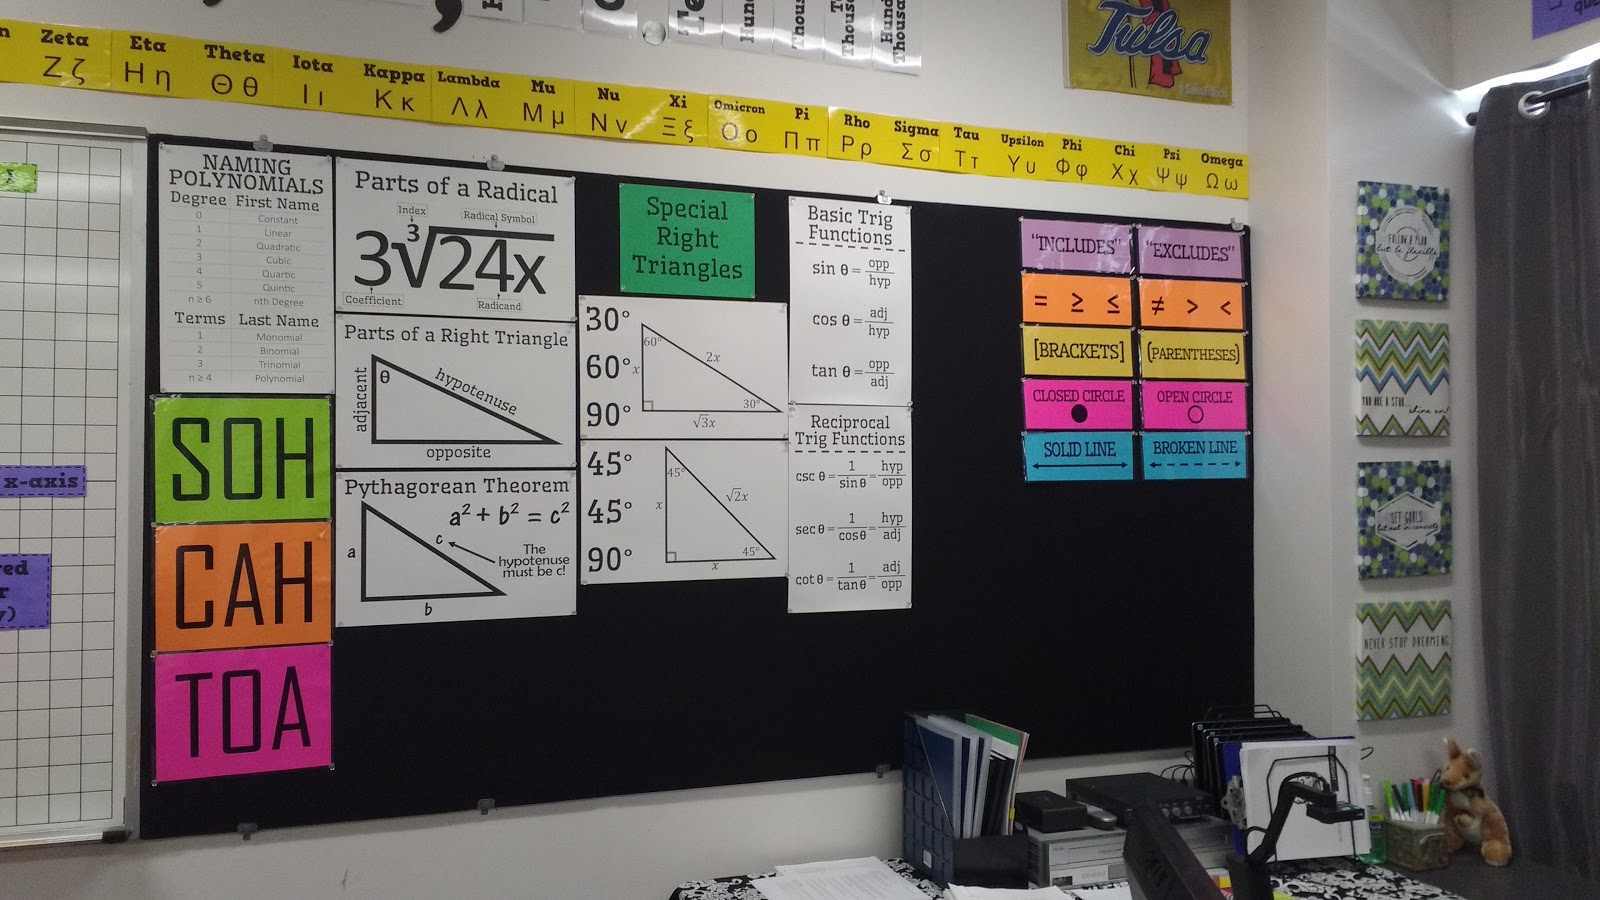 Tulsa
Zeta Eta Theta Iota Kappa Lambda Mu Nu Xi Omicron Pi Rho Sigma Tau Upsilon Phi Chi Psi Omega
Ζζ Ηη Θθ Ιι Κκ Λλ Μμ Νν Ξξ Οο Ππ Ρρ Σσ Ττ Υυ Φφ Χχ Ψψ Ωω
x-axis
NAMING
POLYNOMIALS
Degree First Name
0 Constant
1 Linear
2 Quadratic
3 Cubic
4 Quartic
5 Quintic
n ≥ 6 nth Degree
Terms Last Name
1 Monomial
2 Binomial
3 Trinomial
n ≥ 4 Polynomial
SOH
CAH
TOA
Parts of a Radical
Index Radical Symbol
3∛24x
Coefficient Radicand
Parts of a Right Triangle
θ
adjacent
hypotenuse
opposite
Pythagorean Theorem
a² + b² = c²
a
c
The
hypotenuse
must be c!
b
Special
Right
Triangles
30°
60°
90°
60°
x
2x
30°
√3x
45°
45°
90°
45°
x
√2x
45°
x
Basic Trig
Functions
sin θ = opp/hyp
cos θ = adj/hyp
tan θ = opp/adj
Reciprocal
Trig Functions
csc θ = 1/sin θ = hyp/opp
sec θ = 1/cos θ = hyp/adj
cot θ = 1/tan θ = adj/opp
"INCLUDES" "EXCLUDES"
= ≥ ≤ ≠ > <
[BRACKETS] (PARENTHESES)
CLOSED CIRCLE OPEN CIRCLE
SOLID LINE BROKEN LINE
FOLLOW A PLAN
but be flexible
YOU ARE A STAR...
shine on!
SET GOALS
but not in concrete
NEVER STOP DREAMING